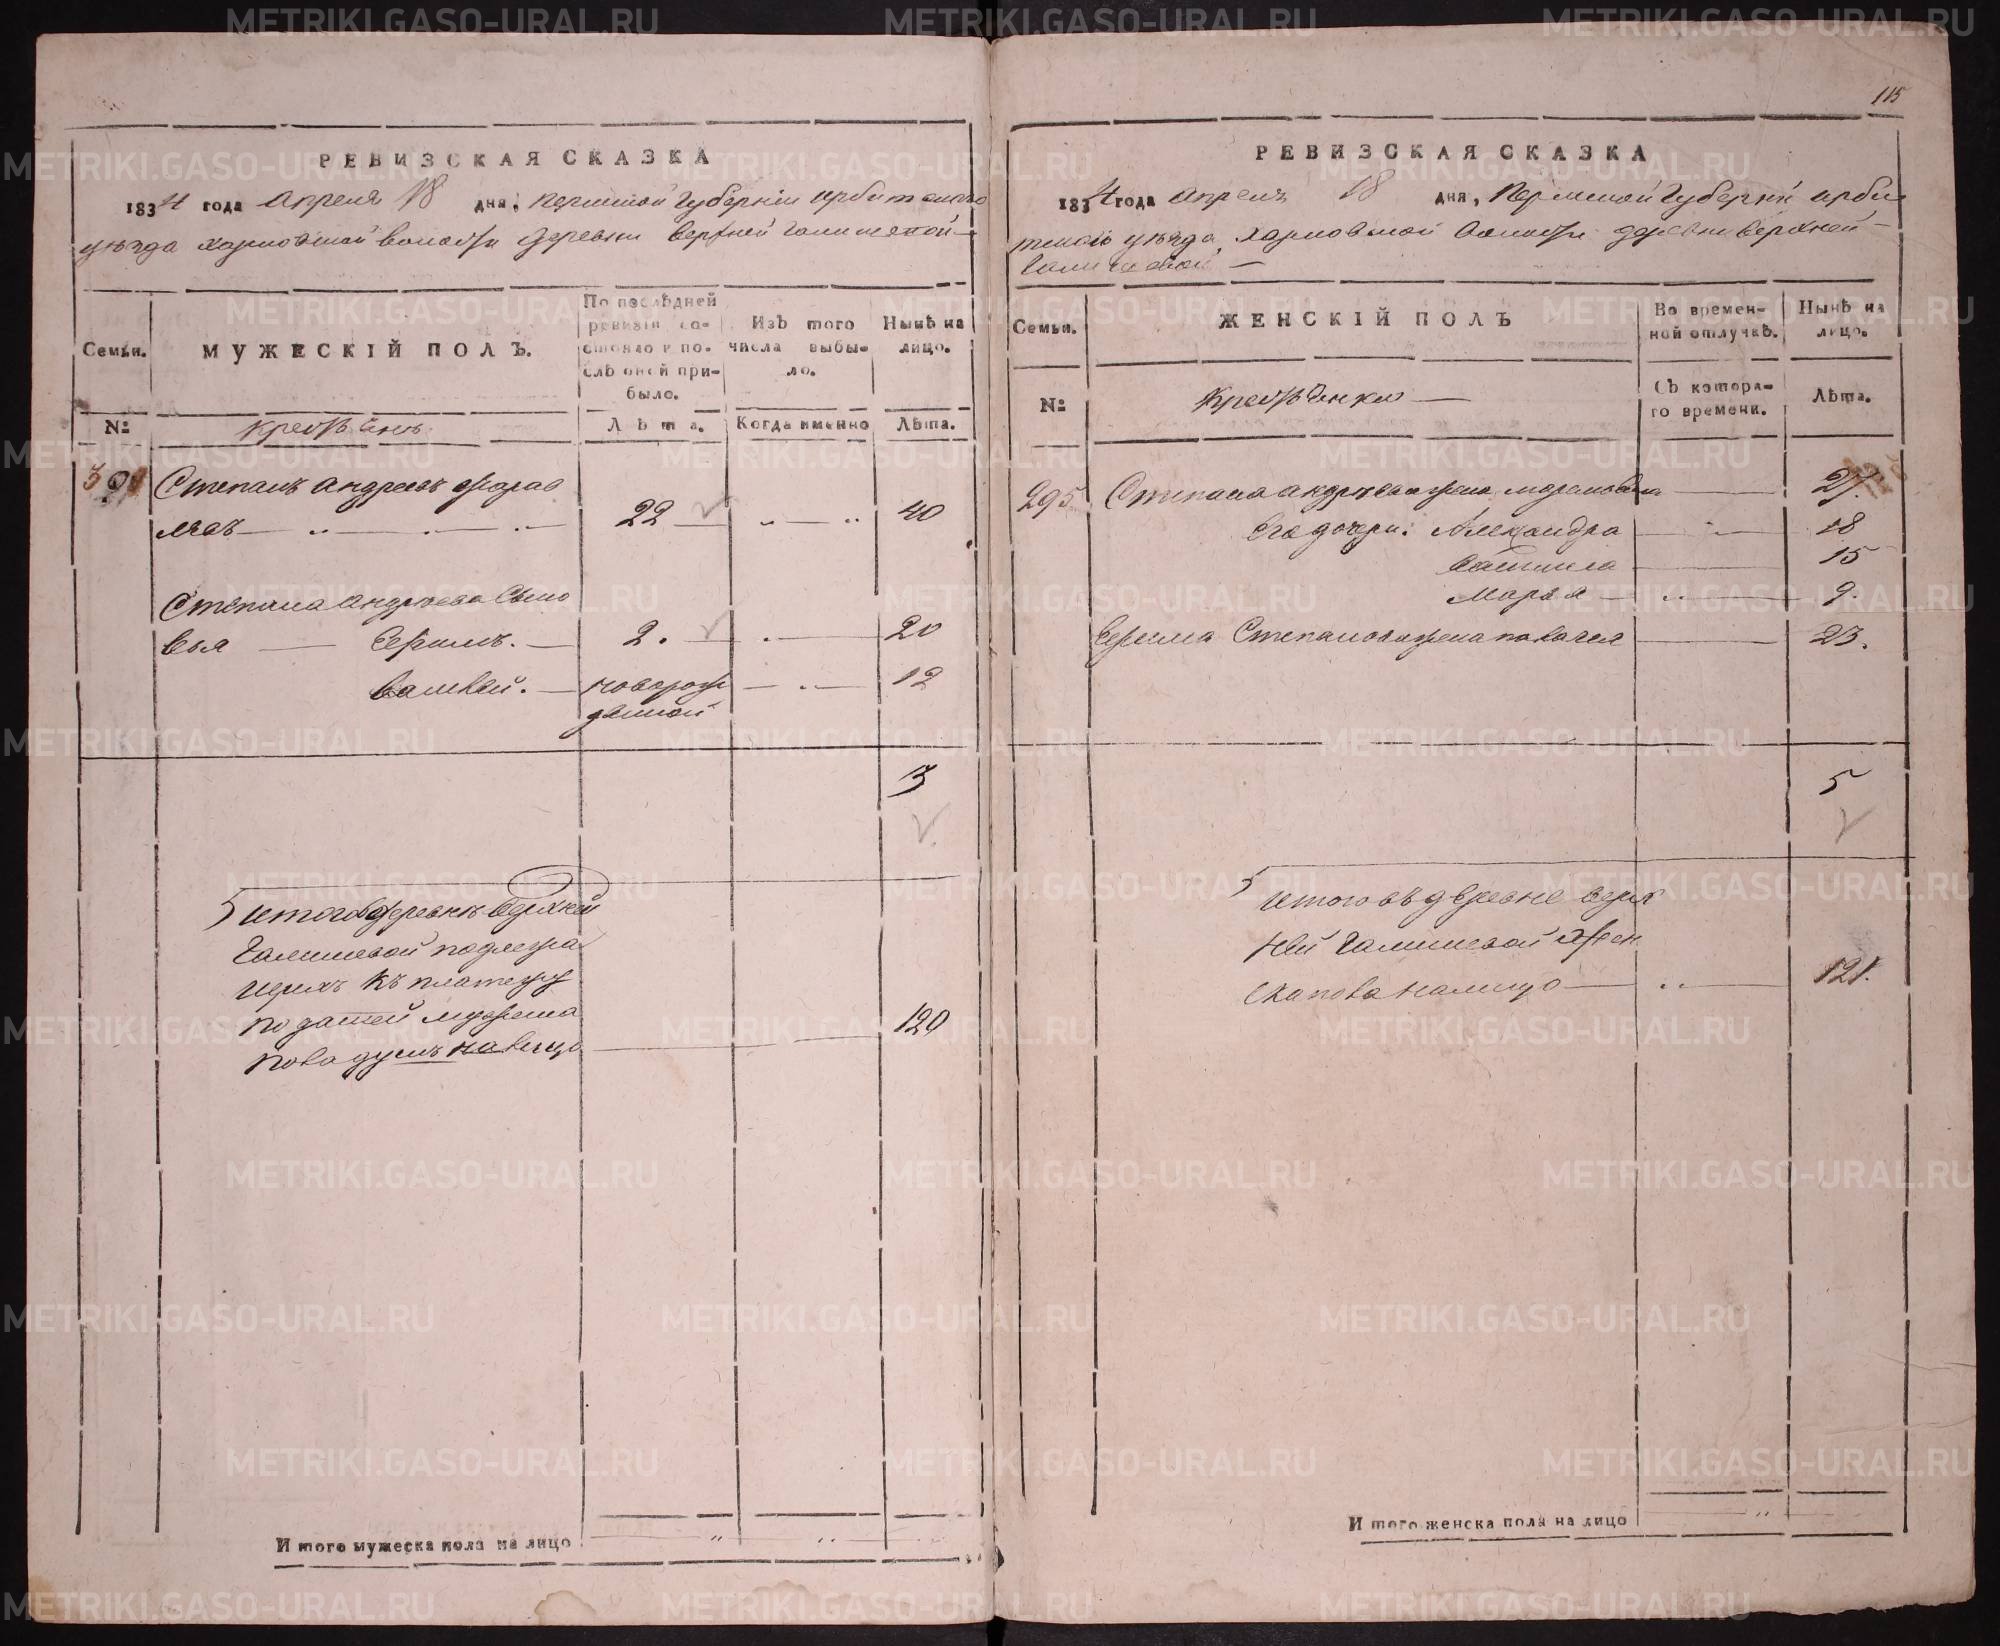 115
РЕВИЗСКАЯ СКАЗКА
1834 года Апреля 18 дня, Пермской Губернiи Ирбитского
уѣзда Харловской волости деревни Верхней Галишевой
Семьи.
МУЖЕСКІЙ ПОЛЪ.
По послѣдней
ревизіи со-
стояло и по-
слѣ оной при-
было.
Изъ того
числа выбы-
ло.
Нынѣ на
лицо.
№
Крестьянъ
Лѣта.
Когда именно
Лѣта.
Степанъ Андреевъ
22 40
Степана Андреева сыно
вья Ефимъ. 2. 20
новорож 12
денной
3
Итого в деревнѣ Верхней
Галишевой подлежа
щихъ къ платежу
податей мужеска
пола душъ на лицо 120
И того мужеска пола на лицо
РЕВИЗСКАЯ СКАЗКА
1834 года Апреля 18 дня, Пермской Губернiи Ирби
тского уѣзда Харловской волости деревни Верхней
Галишевой
Семьи.
ЖЕНСКІЙ ПОЛЪ
Во времен-
ной отлучкѣ.
Нынѣ на
лицо.
№
Крестьянки
Съ котора-
го времени.
Лѣта.
295 Степана Андреева жена 27.
Его дочери: Александра 18
15
Марья 9.
Ефима Степанова жена 23.
5
Итого въ деревне Верх
ней Галишевой жен
скаго пола на лицо 121.
И того женска пола на лицо
METRIKI.GASO-URAL.RU